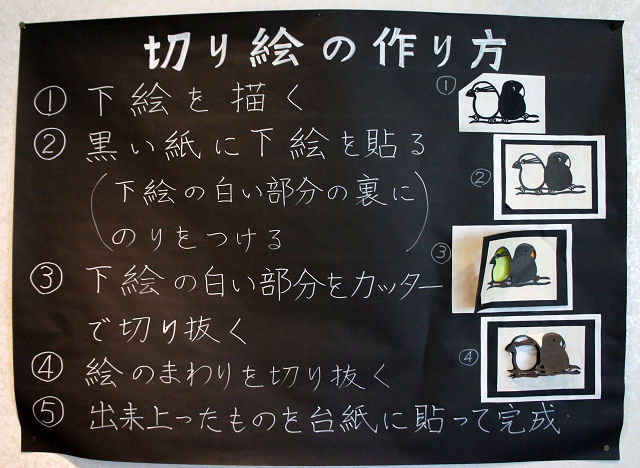 切り絵の作り方
① 下絵を描く
② 黒い紙に下絵を貼る
(下絵の白い部分の裏に
のりをつける)
③ 下絵の白い部分をカッター
で切り抜く
④ 絵のまわりを切り抜く
⑤ 出来上ったものを台紙に貼って完成.
①
②
③
④